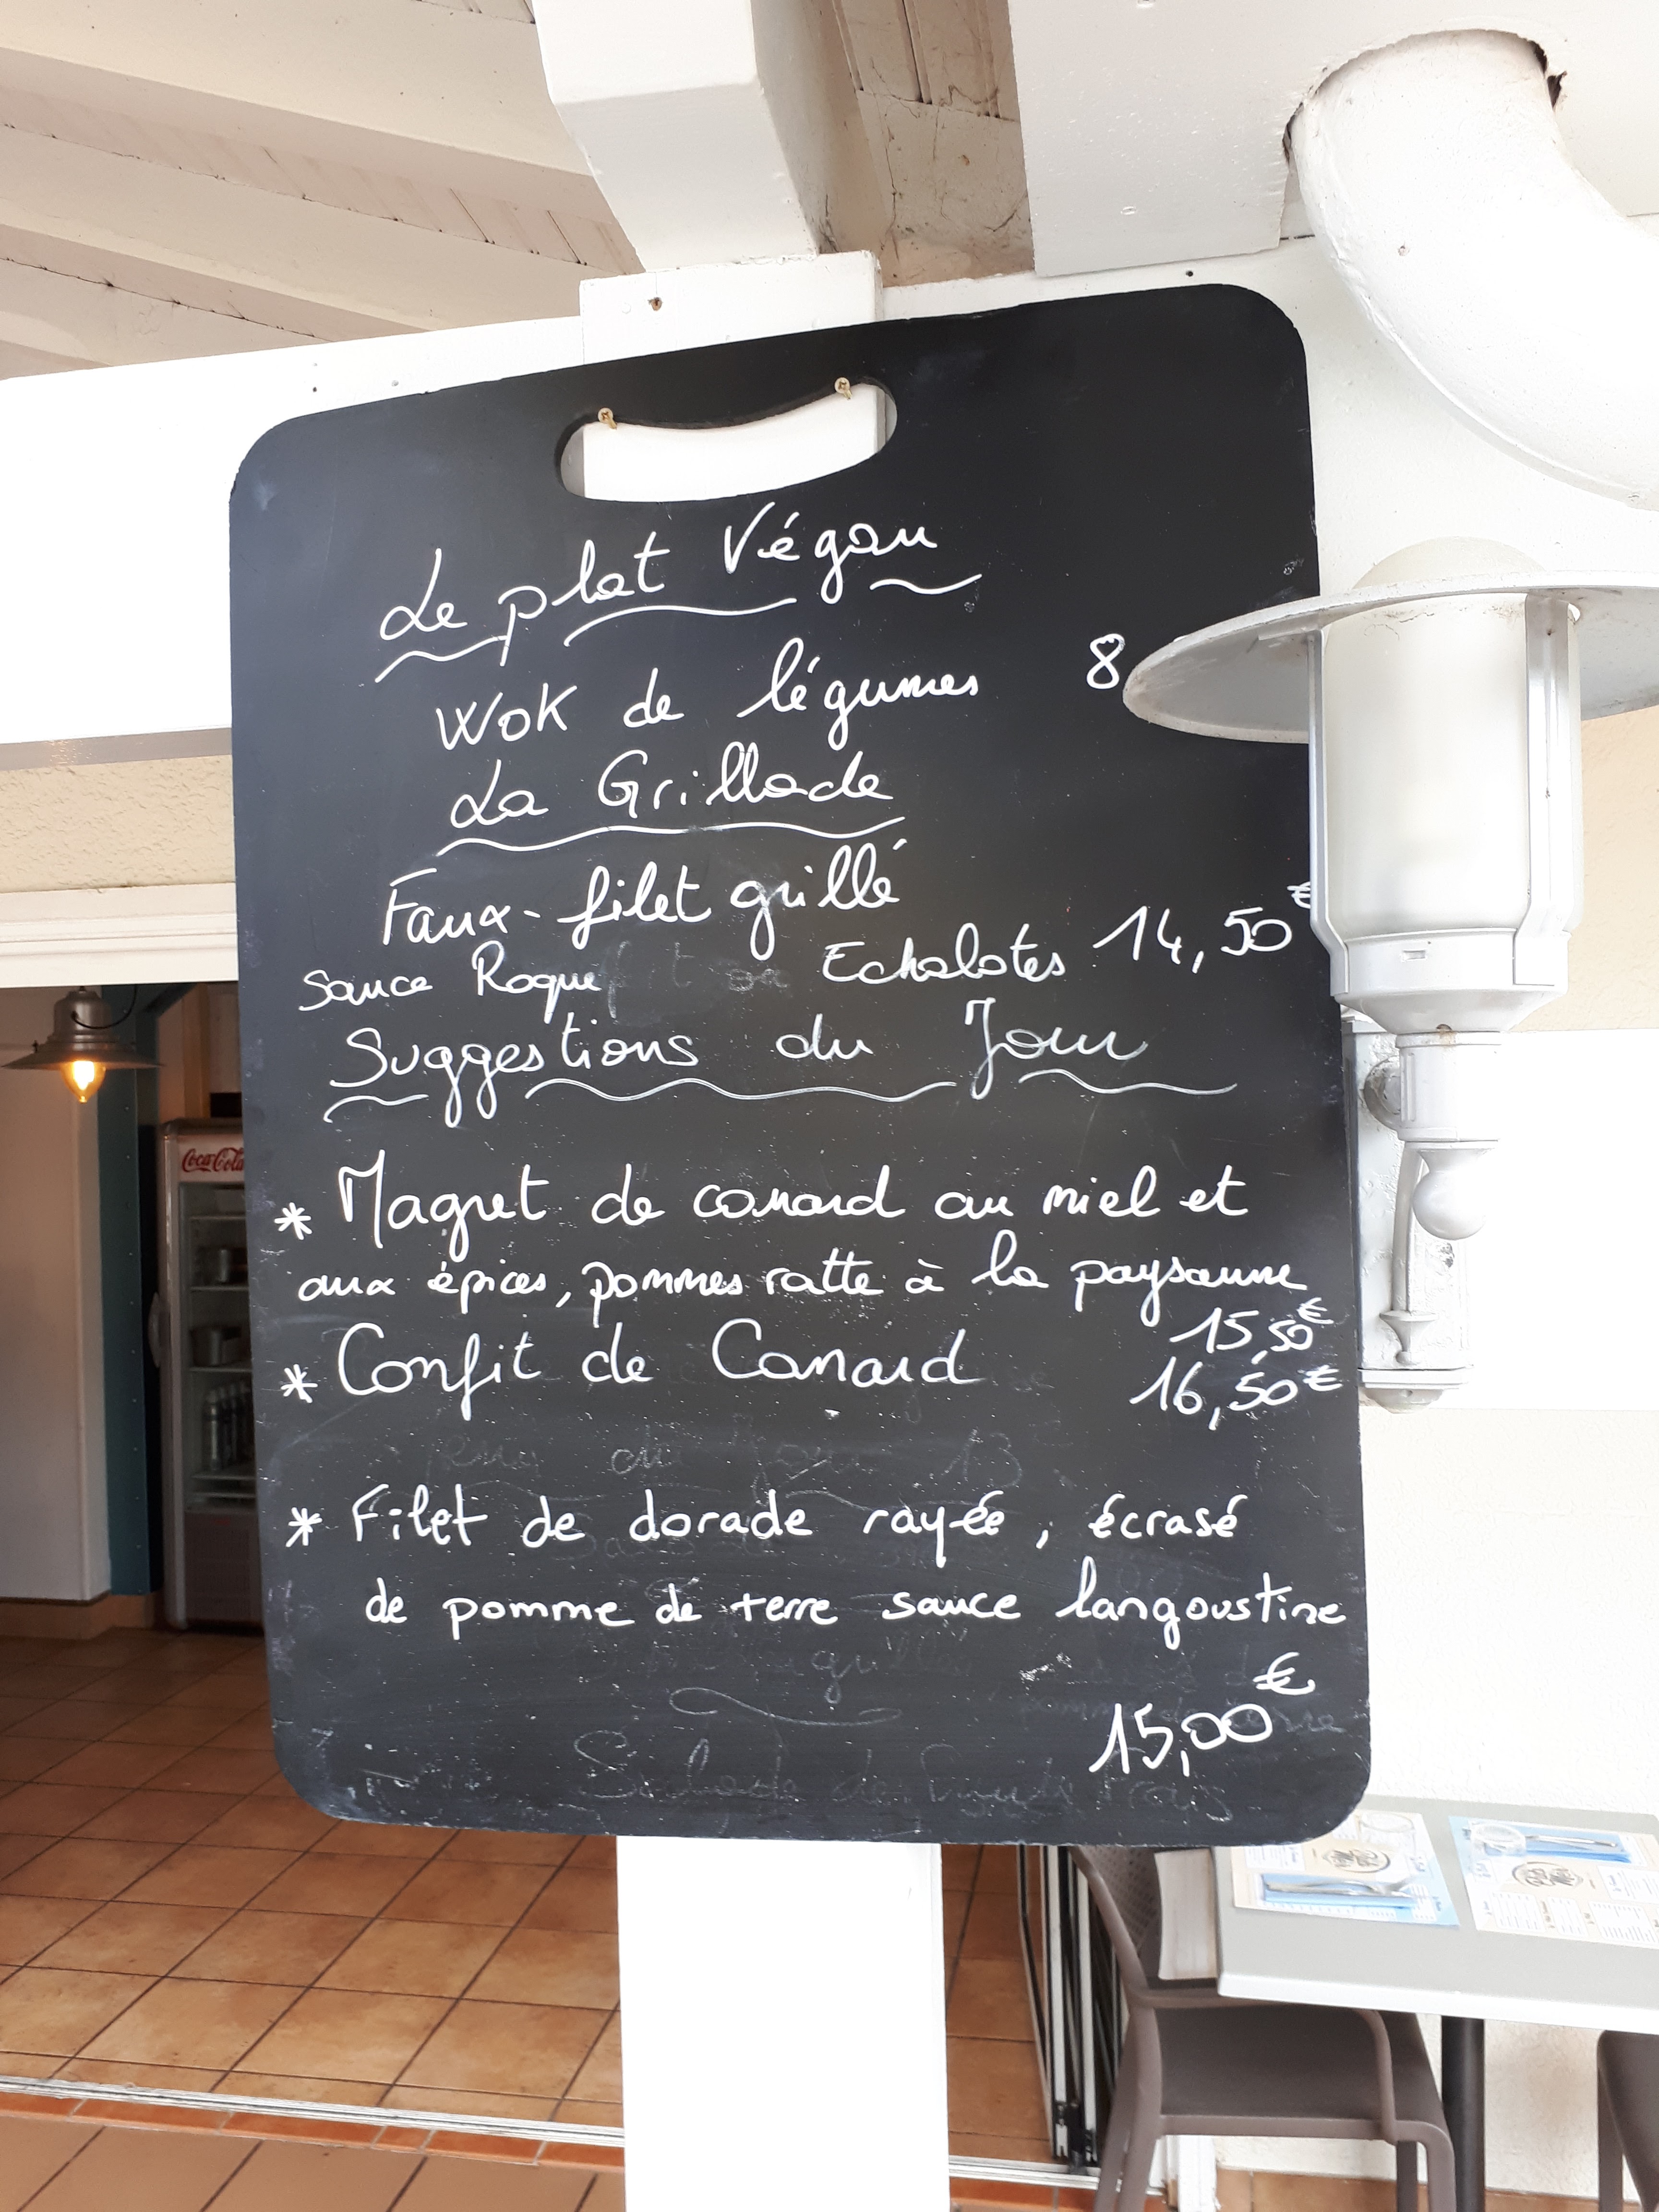 Le plat Végan
Wok de légumes 8
La Grillade
Faux-filet grillé
Sauce Roquefort ou Echalotes 14,50€
Suggestions du Jour
* Magret de canard au miel et
aux épices, pommes ratte à la paysanne
15,50€
* Confit de Canard 16,50€
* Filet de dorade rayée, écrasé
de pomme de terre sauce langoustine
15,00€
Coca-Cola